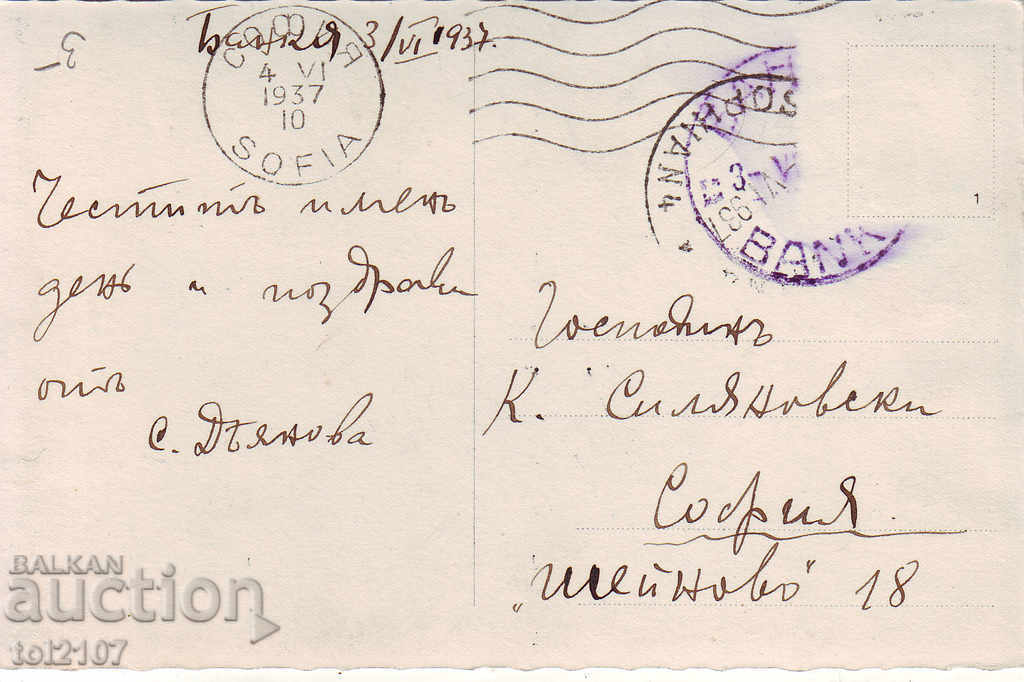 Банкя 3/VI 1937.
СОФИЯ
4 VI
1937
10
SOFIA
BANK
3
1
Честитъ имень
день и поздрави
отъ
С. Дѣянова
Господинъ
К. Силяновски
София
"Шейново" 18
BALKAN
auction
tol2107